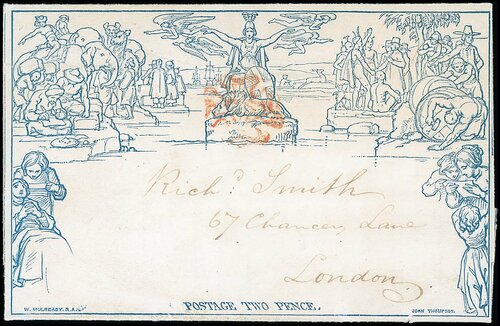 Richd Smith
67 Chancery Lane
London.
POSTAGE TWO PENCE.
W. MULREADY. R.A.
JOHN THOMPSON.